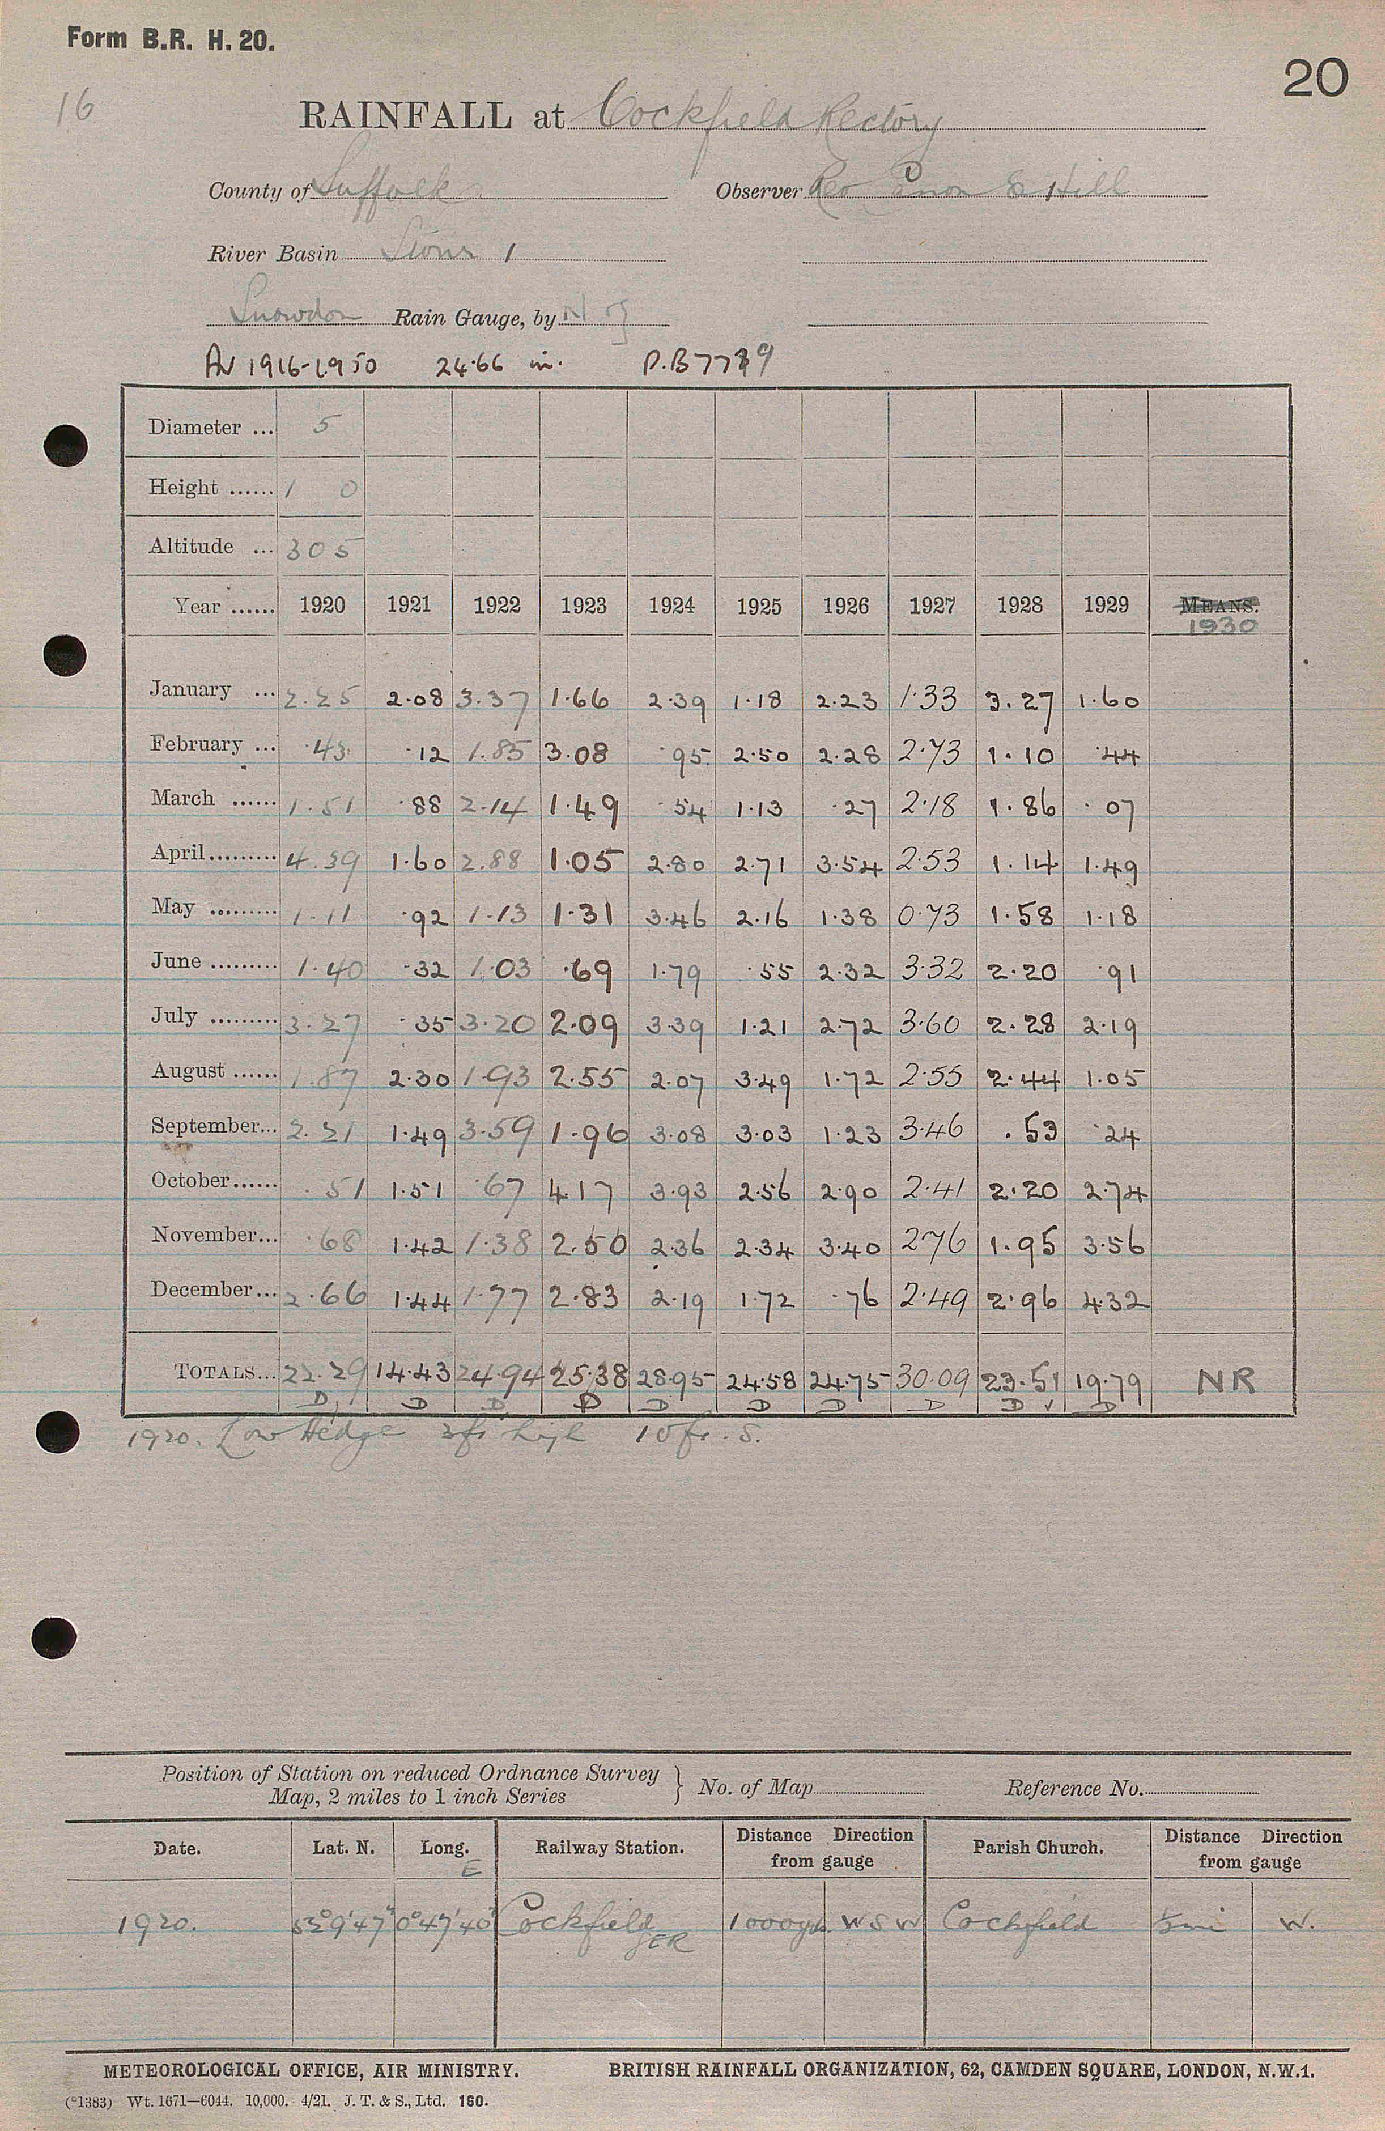 Form B.R. H. 20.
20
16
RAINFALL at Cockfield Rectory
County of Suffolk Observer Rev Canon E Hill
River Basin Stour 1
Snowdon Rain Gauge, by N
Av 1916-1950 24.66 in. P.B 7739
Diameter ... 5
Height ...... 1 0
Altitude ... 305
Year ...... 1920 1921 1922 1923 1924 1925 1926 1927 1928 1929 MEANS.
1930
January ... 2.25 2.08 3.37 1.66 2.39 1.18 2.23 1.33 3.27 1.60
February ... .43 .12 1.85 3.08 .95 2.50 2.28 2.73 1.10 .44
March ...... 1.51 .88 2.14 1.49 .54 1.13 .27 2.18 1.86 .07
April......... 4.39 1.60 2.88 1.05 2.80 2.71 3.54 2.53 1.14 1.49
May ......... 1.11 .92 1.13 1.31 3.46 2.16 1.38 0.73 1.58 1.18
June ......... 1.40 .32 1.03 .69 1.79 .55 2.32 3.32 2.20 .91
July ......... 3.27 .35 3.20 2.09 3.39 1.21 2.72 3.60 2.28 2.19
August ...... 1.87 2.30 1.93 2.55 2.07 3.49 1.72 2.55 2.44 1.05
September... 2.21 1.49 3.59 1.96 3.08 3.03 1.23 3.46 .53 .24
October...... .51 1.51 .67 4.17 3.93 2.56 2.90 2.41 2.20 2.74
November... .68 1.42 1.38 2.50 2.36 2.34 3.40 2.76 1.95 3.56
December... 2.66 1.44 1.77 2.83 2.19 1.72 .76 2.49 2.96 4.32
TOTALS... 22.29 14.43 24.94 25.38 28.95 24.58 24.75 30.09 23.51 19.79 NR
D D D D D D D D D D
1920. Low Hedge 3ft high 10ft. S.
Position of Station on reduced Ordnance Survey
Map, 2 miles to 1 inch Series } No. of Map Reference No.
Date. Lat. N. Long. E Railway Station. Distance Direction from gauge Parish Church. Distance Direction from gauge
1920. 52°9'47" 0°47'40" Cockfield GER 1000yds. WSW Cockfield ½mi W.
METEOROLOGICAL OFFICE, AIR MINISTRY. BRITISH RAINFALL ORGANIZATION, 62, CAMDEN SQUARE, LONDON, N.W.1.
(*1383) Wt. 1671—6044. 10,000. 4/21. J. T. & S., Ltd. 160.